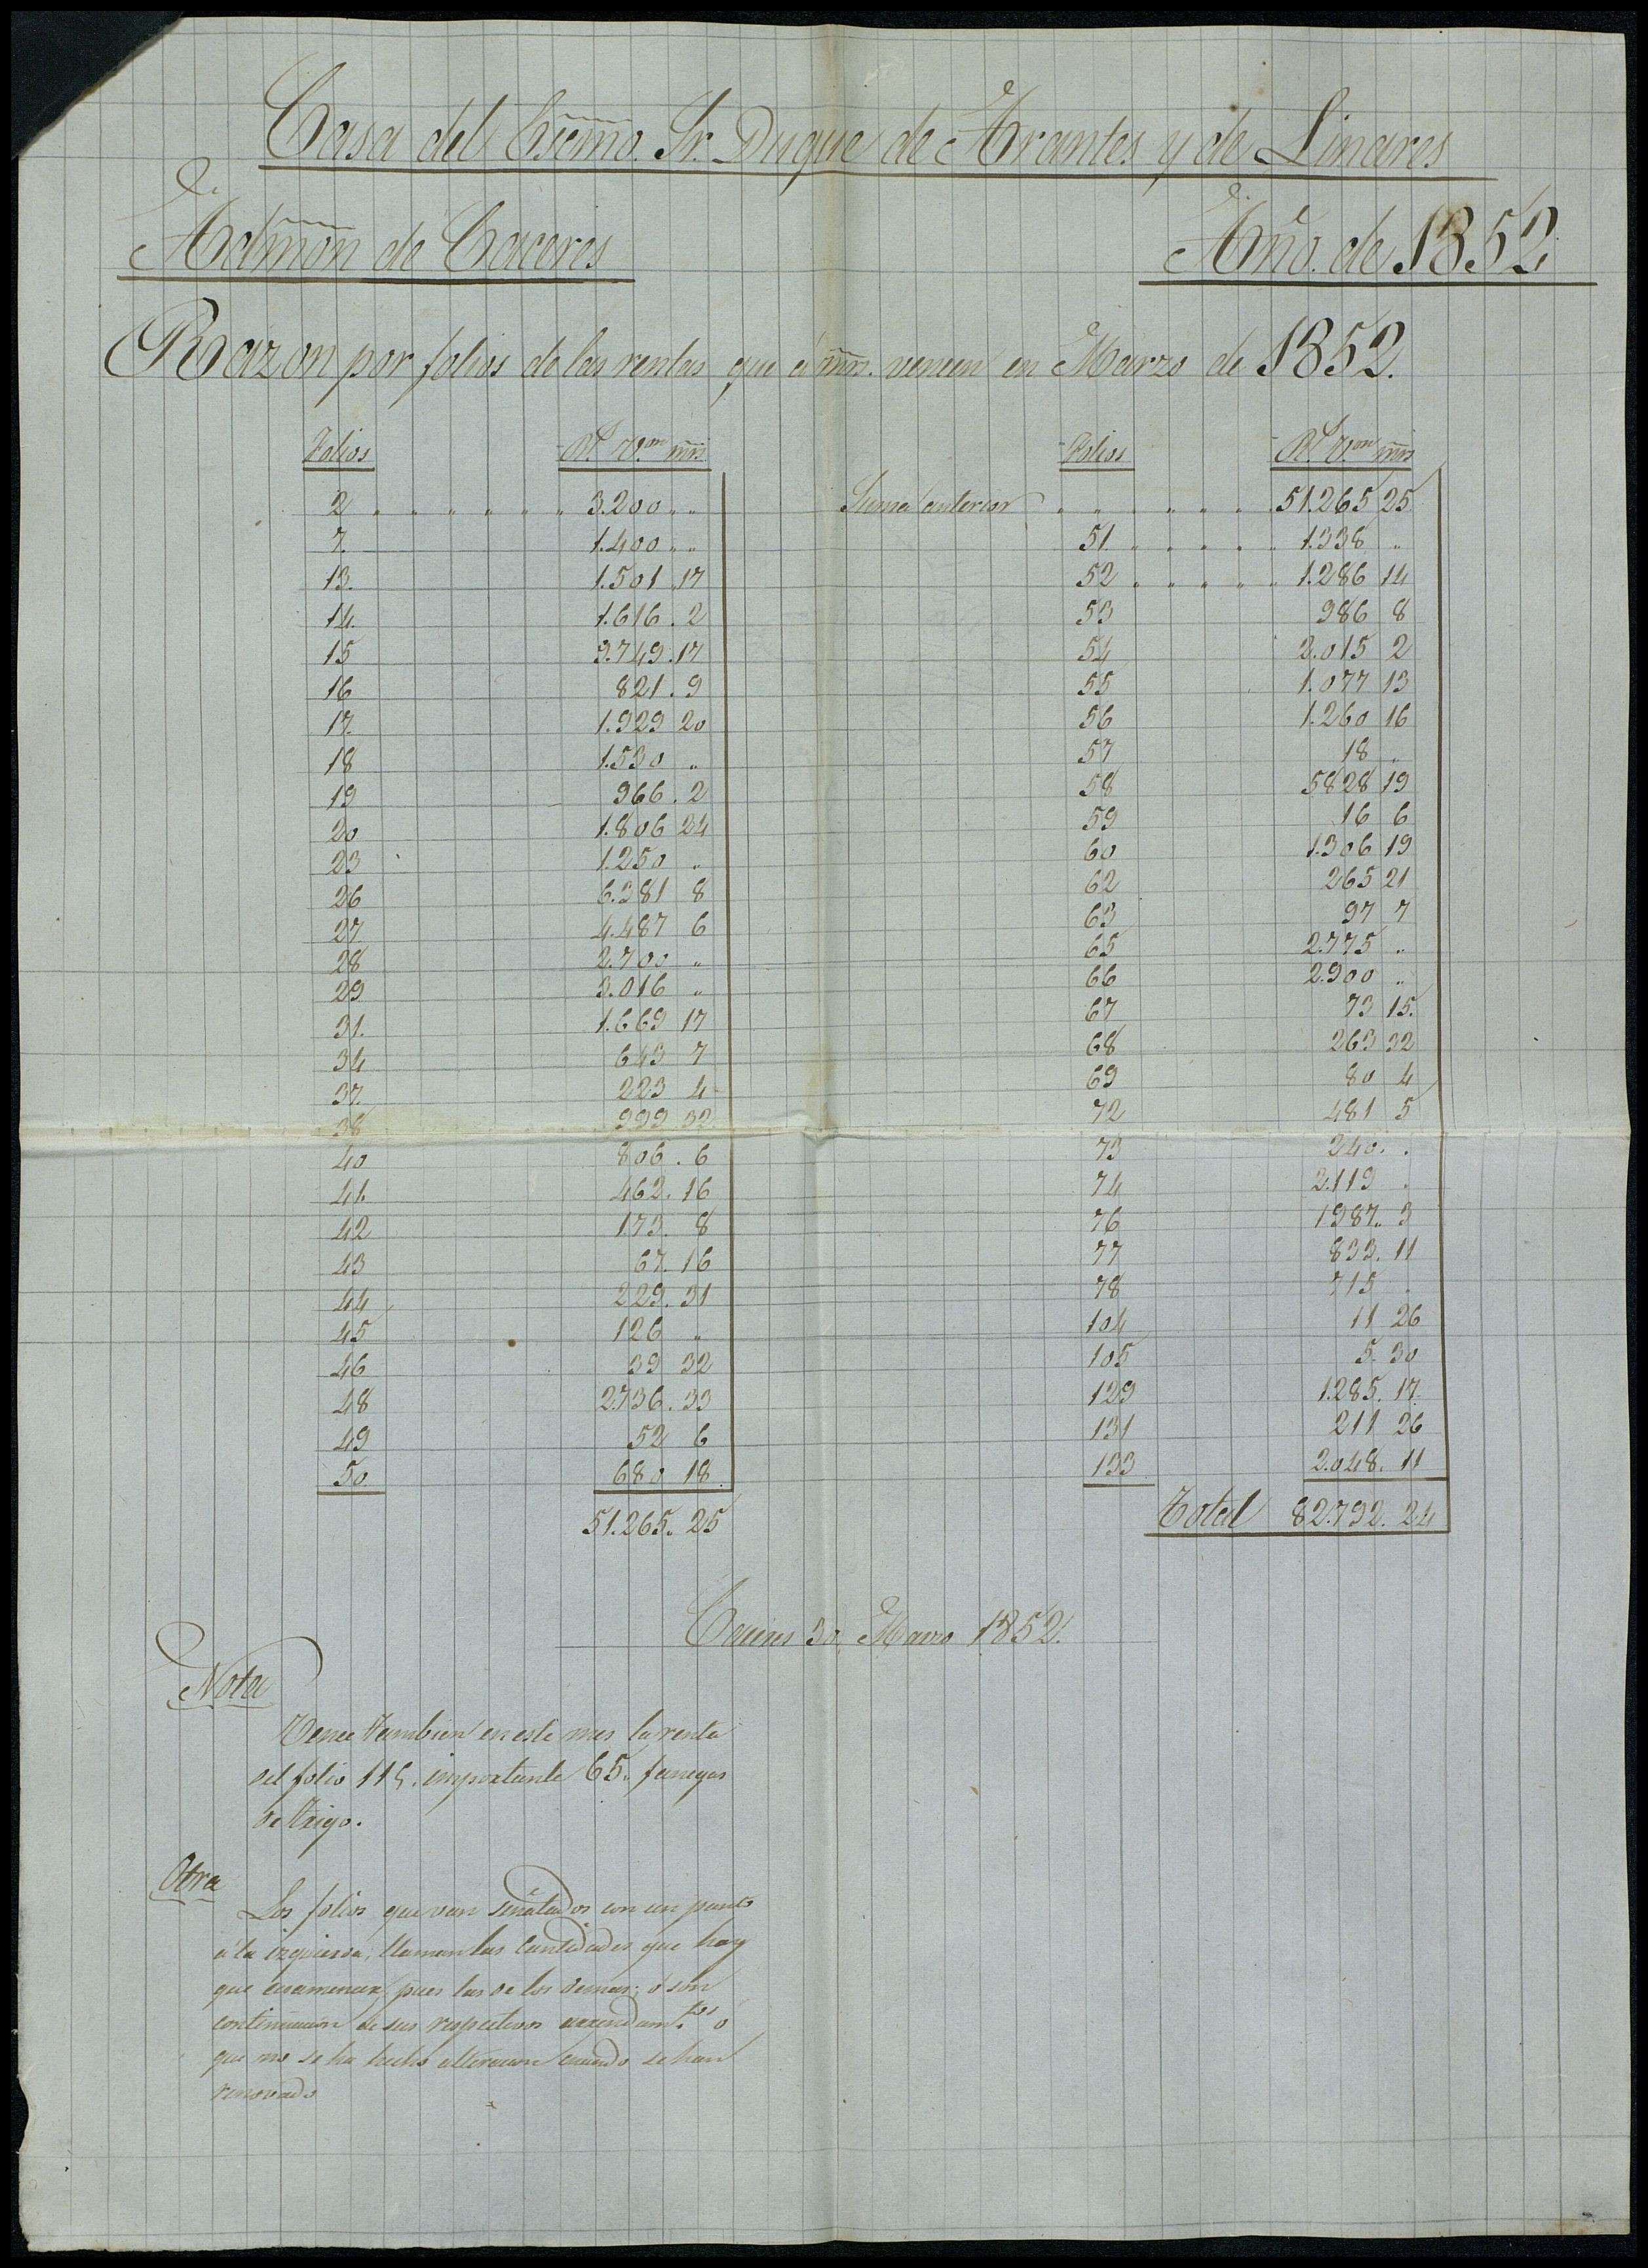 Casa del Escmo. Sr. Duque de Abrantes y de Linares
Admon de Caceres
Año. de 1852
Razon por folios de las rentas que á mrs. vencen en Marzo de 1852.
Folios Rs. Von mrs
2 3.200 ..
7. 1.400 ..
13. 1.501 17
14. 1.616 . 2
15 9.749 . 17
16 821 . 9
17. 1.929 20
18 1.530 ..
19 966 . 2
20 1.806 24
23 1.250 ..
26 6.381 8
27 4.487 6
28 2.700 ..
29 3.016 ..
31. 1.669 17
34 643 7
37. 223 4
38 999 32
40 806 . 6
41. 462 . 16
42 173 . 8
43 67 . 16
44 229 . 31
45 126 ..
46 39 32
48 2.736 . 33
49 52 6
50 680 18
51.265. 25
Folios Rs. Von mrs
Suma anterior 51.265 25
51. 1.338 ..
52 1.286 14
53 986 8
54 2.015 2
55 1.077 13
56 1.260 16
57 18 ..
58 5828 19
59 16 6
60 1.306 19
62 265 21
63 97 7
65 2.775 ..
66 2.900 ..
67 73 15.
68 263 32
69 80 4
72 481 5
73 240 . .
74 2.119 .
76 1987.. 3
77 833. 11
78 715 .
104 11 26
105 5. 30
129 1.285. 17.
131 211 26
133 2.048. 11
Total 82.792. 24
Caceres 30 Marzo 1852.
Nota
Vence tambien en este mes la renta
del folio 115. importante 65. fanegas
de trigo.
Otra
Los folios que van señalados con un punto
á la izquierda, llaman las cantidades que hay
que examinar, pues las de los demas, ó son
continuacion de sus respectivos arrendamtos ó
que no se ha hecho alteracion cuando se han
renovado